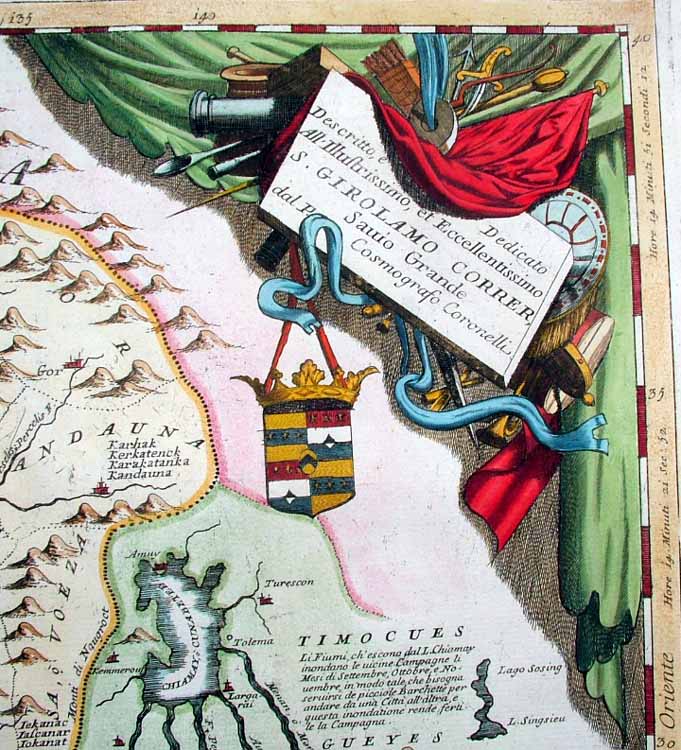 135
140
40
Hore 14 Minuti 51 Secondi 12
Descritto, e Dedicato
All'Illustrissimo, et Eccellentissimo
S. GIROLAMO CORRER,
Sauio Grande
dal P. Cosmografo Coronelli,
Gor
ANDAUNA
Karhak
Kerkatenck
Karakatanka
Kandauna
35
Hore 14 Minuti 21 Sec: 52
Amuy
Turescon
Tolema
CHIAMAY,
Kemmerou
Larga
rai
SAO VOEZA
TIMOCUES
Li Fiumi, ch'escono dal L. Chiamay
inondano le uicine Campagne li
Mesi di Settembre, Ottobre, e No-
uembre, in modo tale, che bisogna
seruirsi de picciole Barchette per
andare da una Città all'altra, e
questa inondatione rende ferti-
le la Campagna.
GUEYES
Lago Sosing
L. Singsieu
Iekanac
Ialcanar
Iokanat
Oriente
30